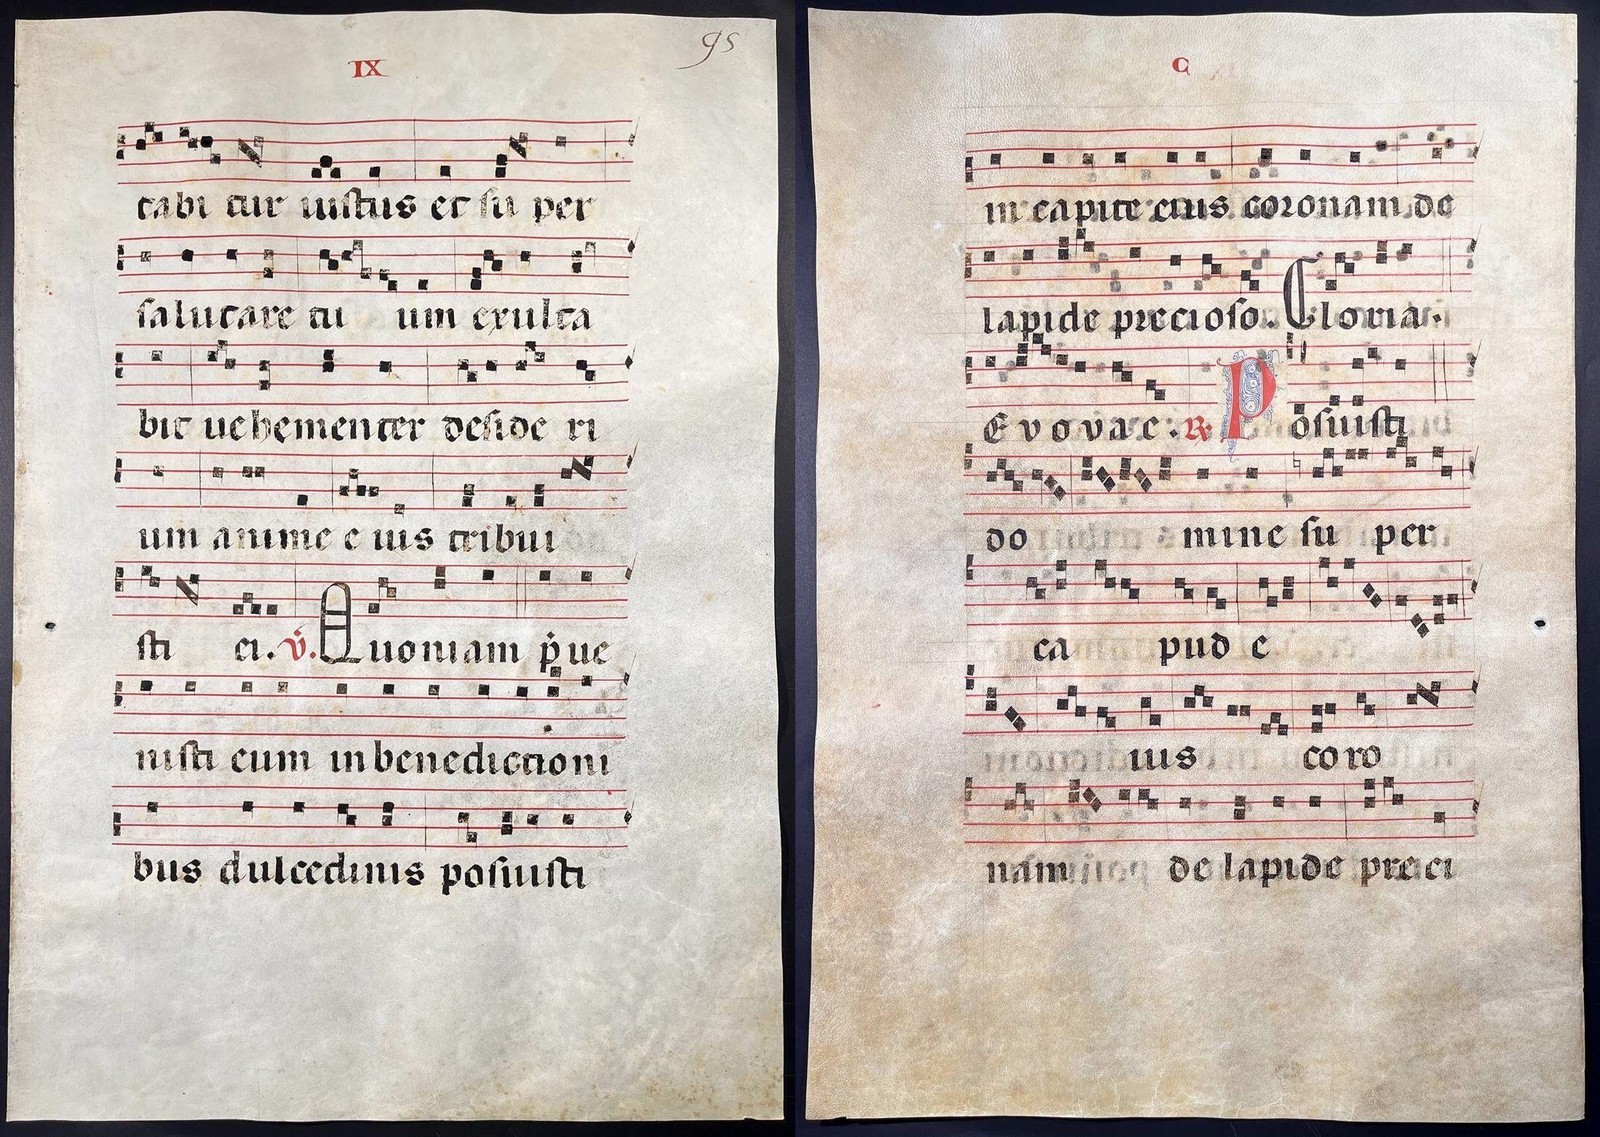 IX
95
tabi tur iustus et su per
salutare tu um exulta
bit uehementer deside ri
um anime e ius tribui
sti ei. v. Quoniam p̄ue
nisti eum in benedictioni
bus dulcedinis posuisti
C
in capite eius coronam de
lapide precioso. Gloria.
Evovae. R. Posuisti
do mine su per
ca pud e
ius coro
nam de lapide preci